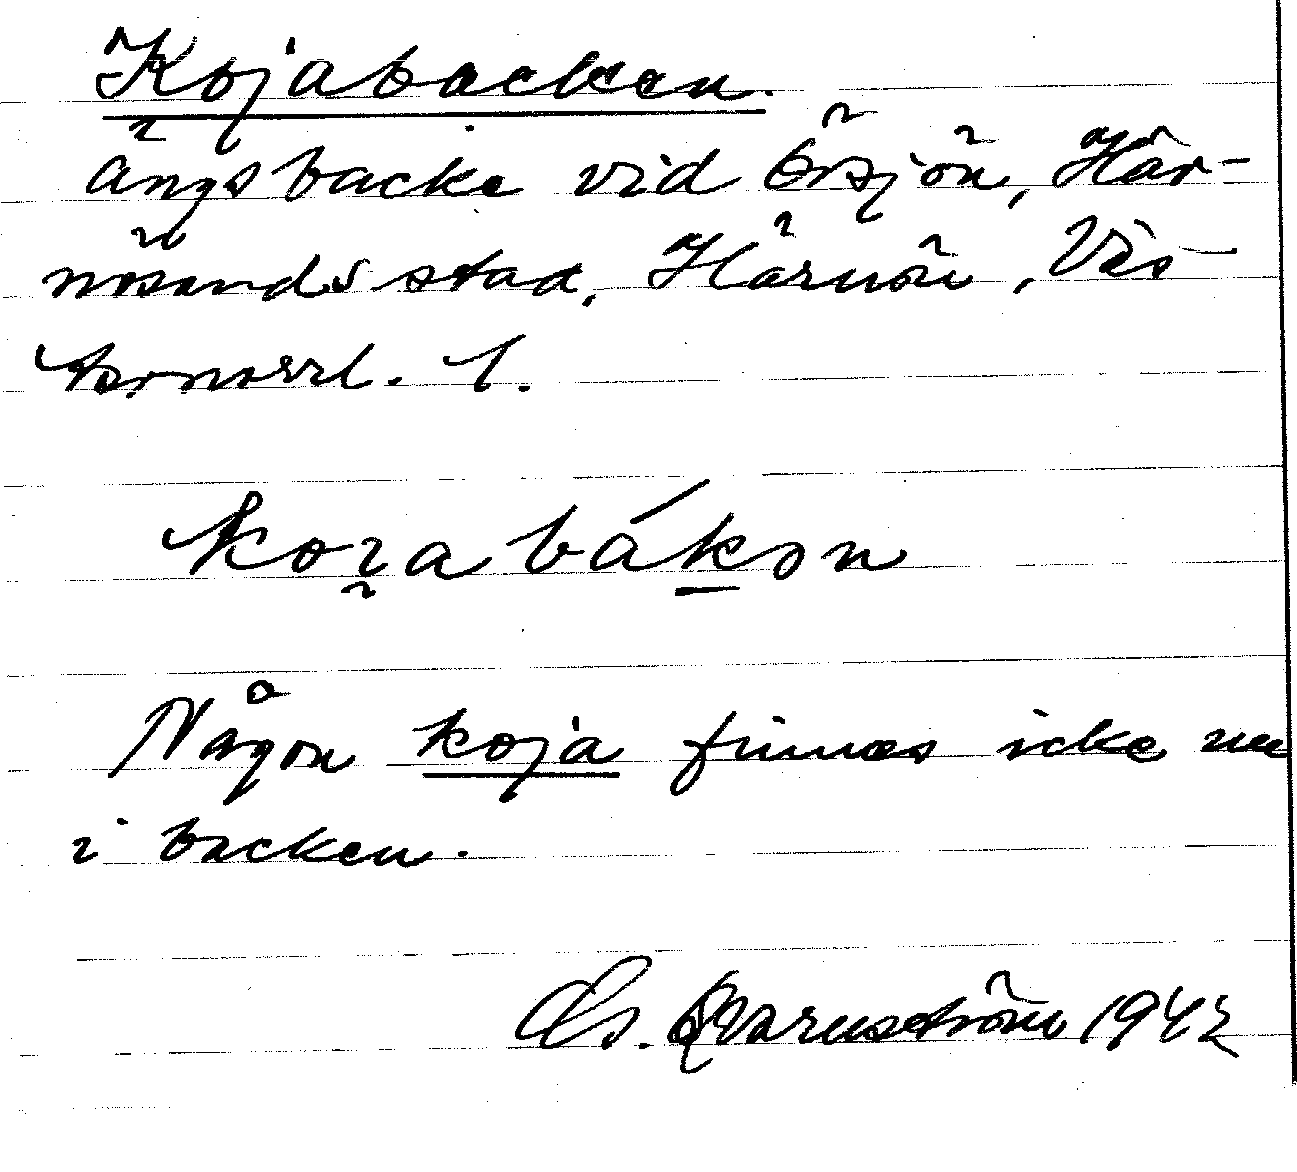 Kojabacken.
ängsbacke vid Örsjön, Här-
nösands stad, Härnön, Väs-
ternorrl. l.
Någon koja finnes icke nu
i backen.
Qvarnström 1942